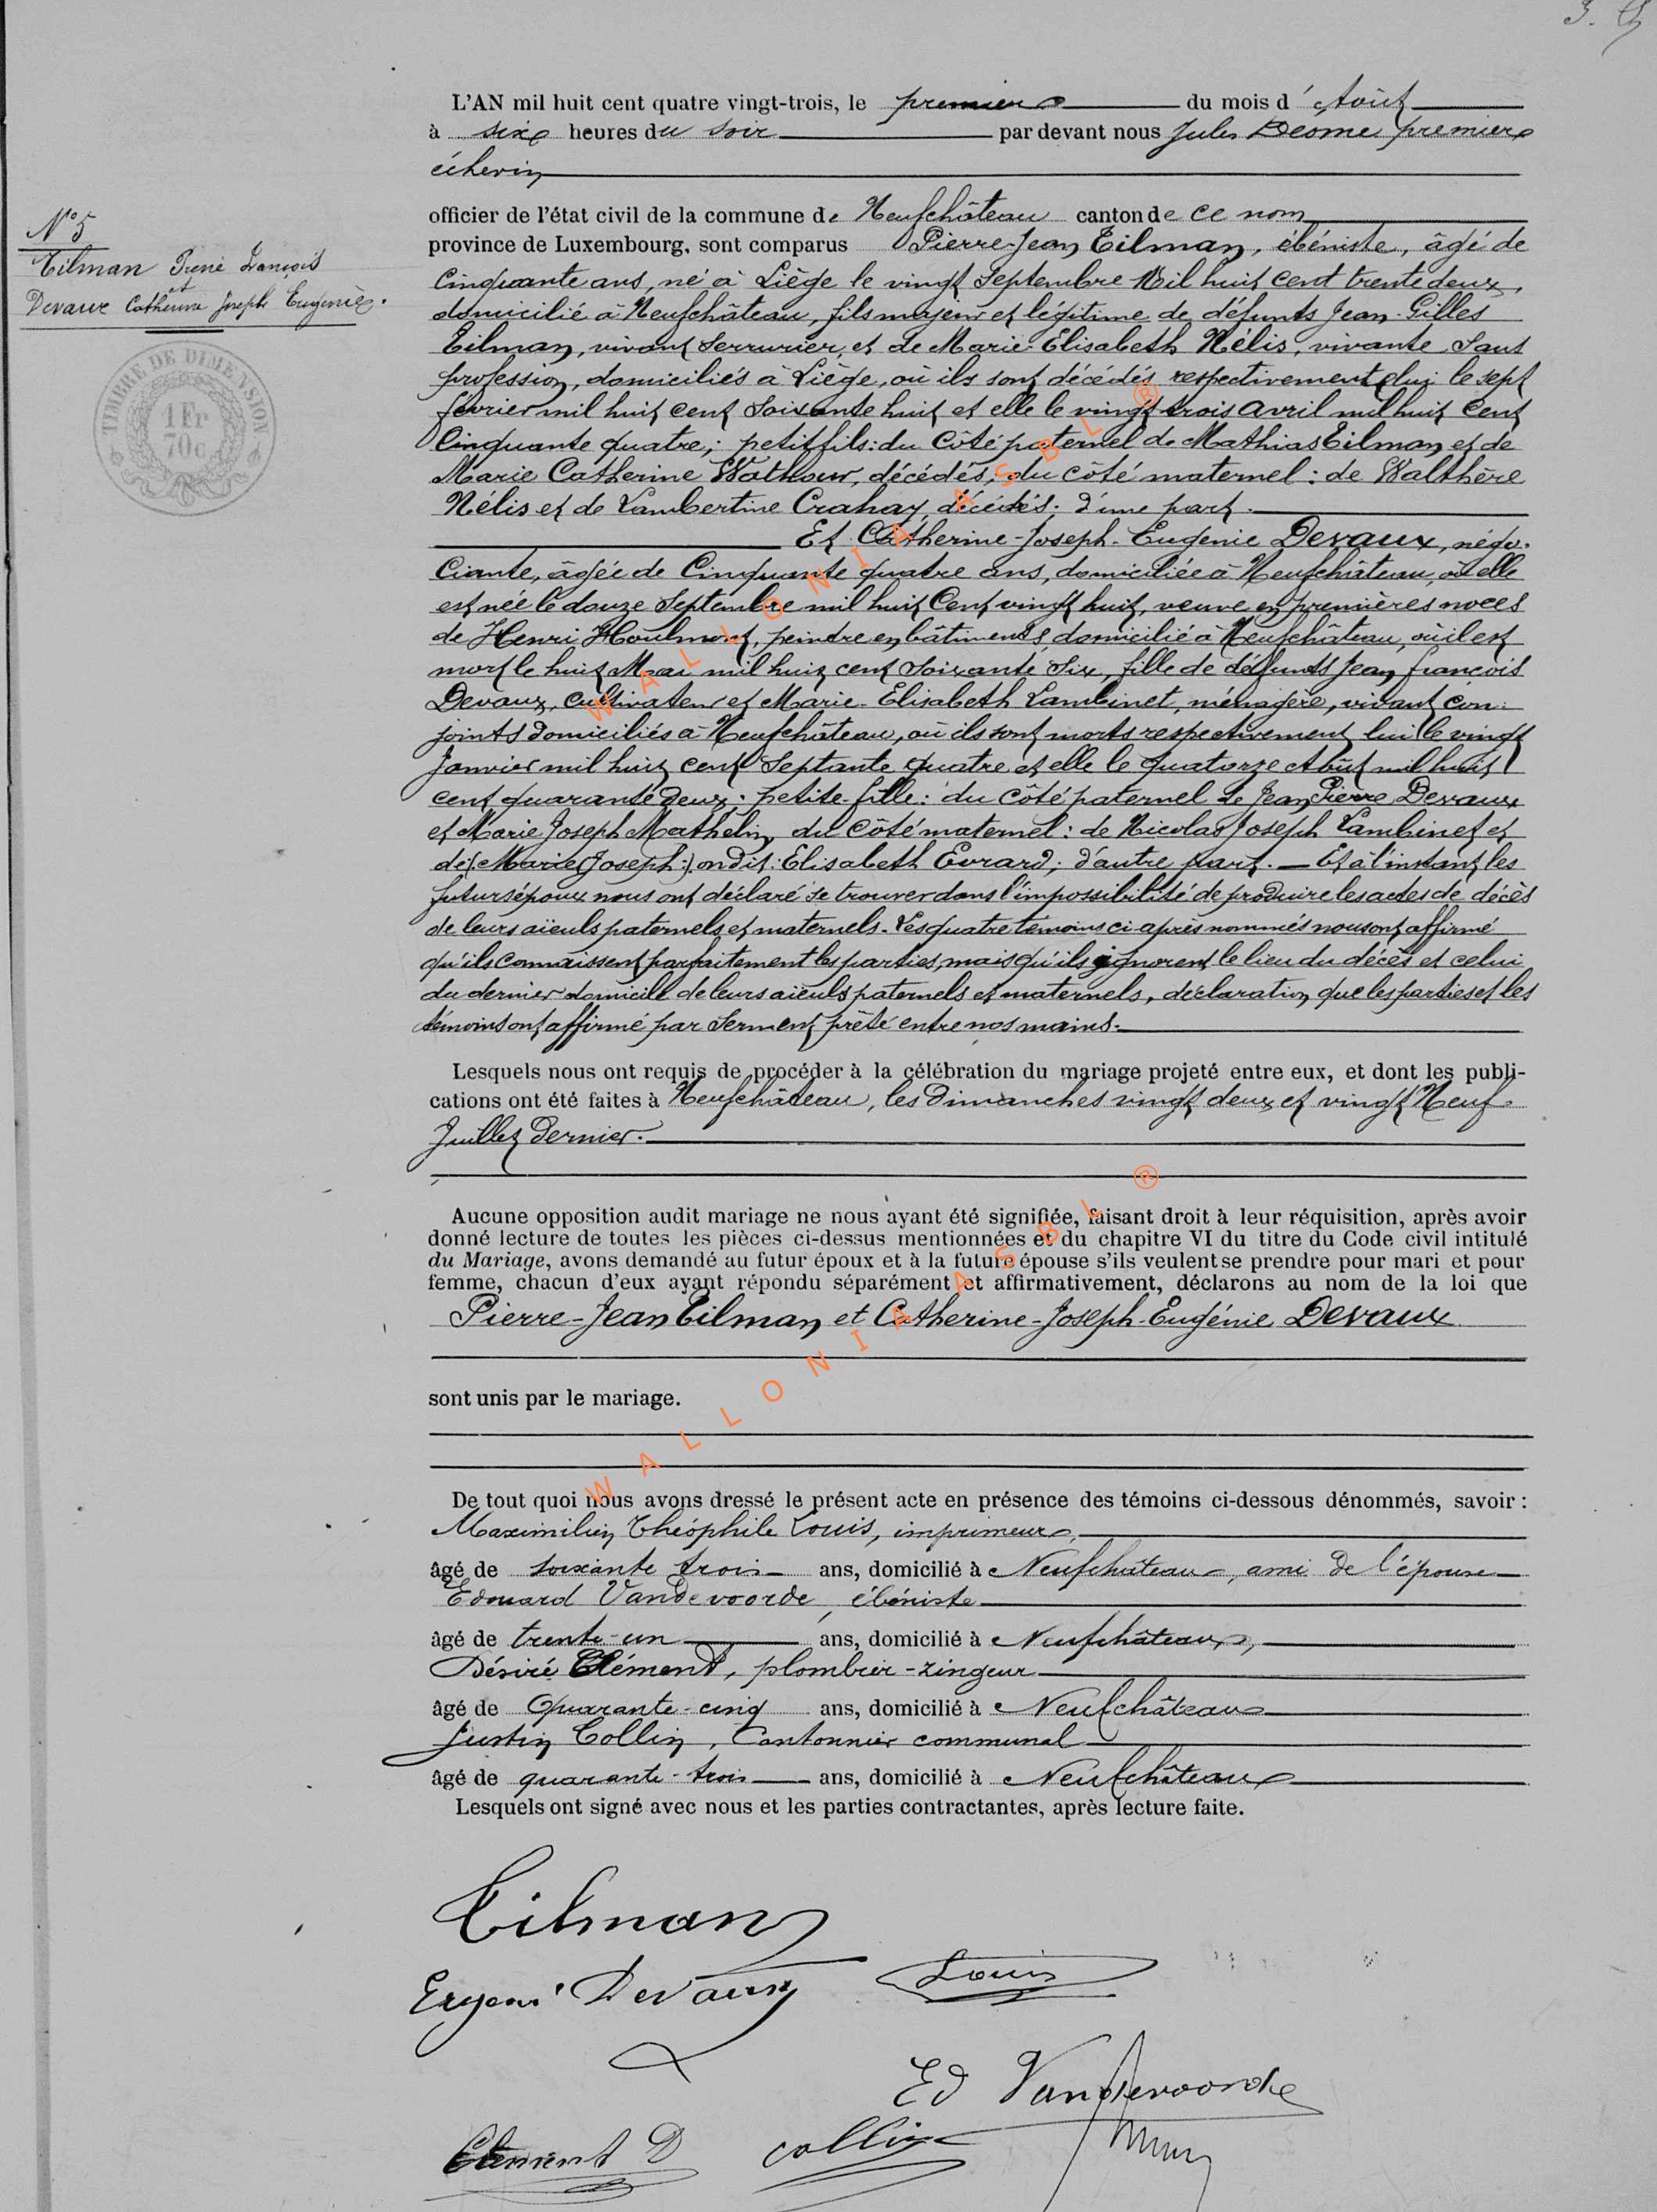 L'AN mil huit cent quatre vingt-trois, le premier du mois d'Août
à six heures du soir par devant nous Jules Deome premier
échevin
officier de l'état civil de la commune de Neufchâteau canton de ce nom
province de Luxembourg, sont comparus Pierre-Jean Tilman, ébéniste, âgé de
Cinquante ans, né à Liège le vingt Septembre Mil huit cent trente deux,
domicilié à Neufchâteau, fils majeur et légitime de défunts Jean-Gilles
Tilman, vivant Serrurier, et de Marie-Elisabeth Nélis, vivante Sans
profession, domiciliés à Liège, où ils sont décédés respectivement lui le sept
février mil huit cent Soixante huit et elle le vingt trois avril mil huit Cent
Cinquante quatre; petit fils: du Côté paternel de Mathias Tilman et de
Marie Catherine Wathour, décédés; du côté maternel: de Walthère
Nélis et de Lambertine Crahay, décédés; d'une part.
Et Catherine-Joseph-Eugénie Devaux, négo-
ciante, âgée de Cinquante quatre ans, domiciliée à Neufchâteau, où elle
est née le douze Septembre mil huit Cent vingt huit, veuve en premières noces
de Henri Houlmont, peindre en bâtiments, domicilié à Neufchâteau, où il est
mort le huit Mai mil huit cent Soixante Six, fille de défunts Jean françois
Devaux, Cultivateur et Marie-Elisabeth Lambinet, ménagère, vivant con-
joints domiciliés à Neufchâteau, où ils sont morts respectivement lui le vingt
Janvier mil huit cent Septante quatre et elle le quatorze Août mil huit
cent quarante deux; petite-fille: du Côté paternel de Jean Pierre Devaux
et Marie Joseph Mathelin, du Côté maternel: de Nicolas Joseph Lambinet et
de (Marie Joseph:) on dit: Elisabeth Evrard; d'autre part. — Et à l'instant les
futurs époux nous ont déclaré se trouver dans l'impossibilité de produire les actes de décès
de leurs aïeuls paternels et maternels. Les quatre témoins ci-après nommés nous ont affirmé
qu'ils connaissent parfaitement les parties, mais qu'ils ignorent le lieu du décès et celui
du dernier domicile de leurs aïeuls paternels et maternels, déclaration que les parties et les
témoins ont affirmé par Serment prêté entre nos mains.
Lesquels nous ont requis de procéder à la célébration du mariage projeté entre eux, et dont les publi-
cations ont été faites à Neufchâteau, les Dimanches vingt deux et vingt Neuf
Juillet Dernier.
Aucune opposition audit mariage ne nous ayant été signifiée, faisant droit à leur réquisition, après avoir
donné lecture de toutes les pièces ci-dessus mentionnées et du chapitre VI du titre du Code civil intitulé
du Mariage, avons demandé au futur époux et à la future épouse s'ils veulent se prendre pour mari et pour
femme, chacun d'eux ayant répondu séparément et affirmativement, déclarons au nom de la loi que
Pierre-Jean Tilman et Catherine-Joseph-Eugénie Devaux
sont unis par le mariage.
De tout quoi nous avons dressé le présent acte en présence des témoins ci-dessous dénommés, savoir:
Maximilien Théophile Louis, imprimeur,
âgé de soixante trois ans, domicilié à Neufchâteau, ami de l'épouse
Edouard Vandevoorde, ébéniste
âgé de trente-un ans, domicilié à Neufchâteau,
Désiré Clément, plombier-zingeur
âgé de Quarante-cinq ans, domicilié à Neufchâteau
Justin Collin, Cantonnier communal
âgé de quarante-trois ans, domicilié à Neufchâteau
Lesquels ont signé avec nous et les parties contractantes, après lecture faite.
Tilman
Eugeni Devaux
Louis
Ed Vandevoorde
Clement D
collin
N° 5
Tilman Pierre François
et
Devaux Catherine Joseph Eugénie.
TIMBRE DE DIMENSION
1 Fr
70c
WALLONIA ASBL ®
WALLONIA ASBL ®